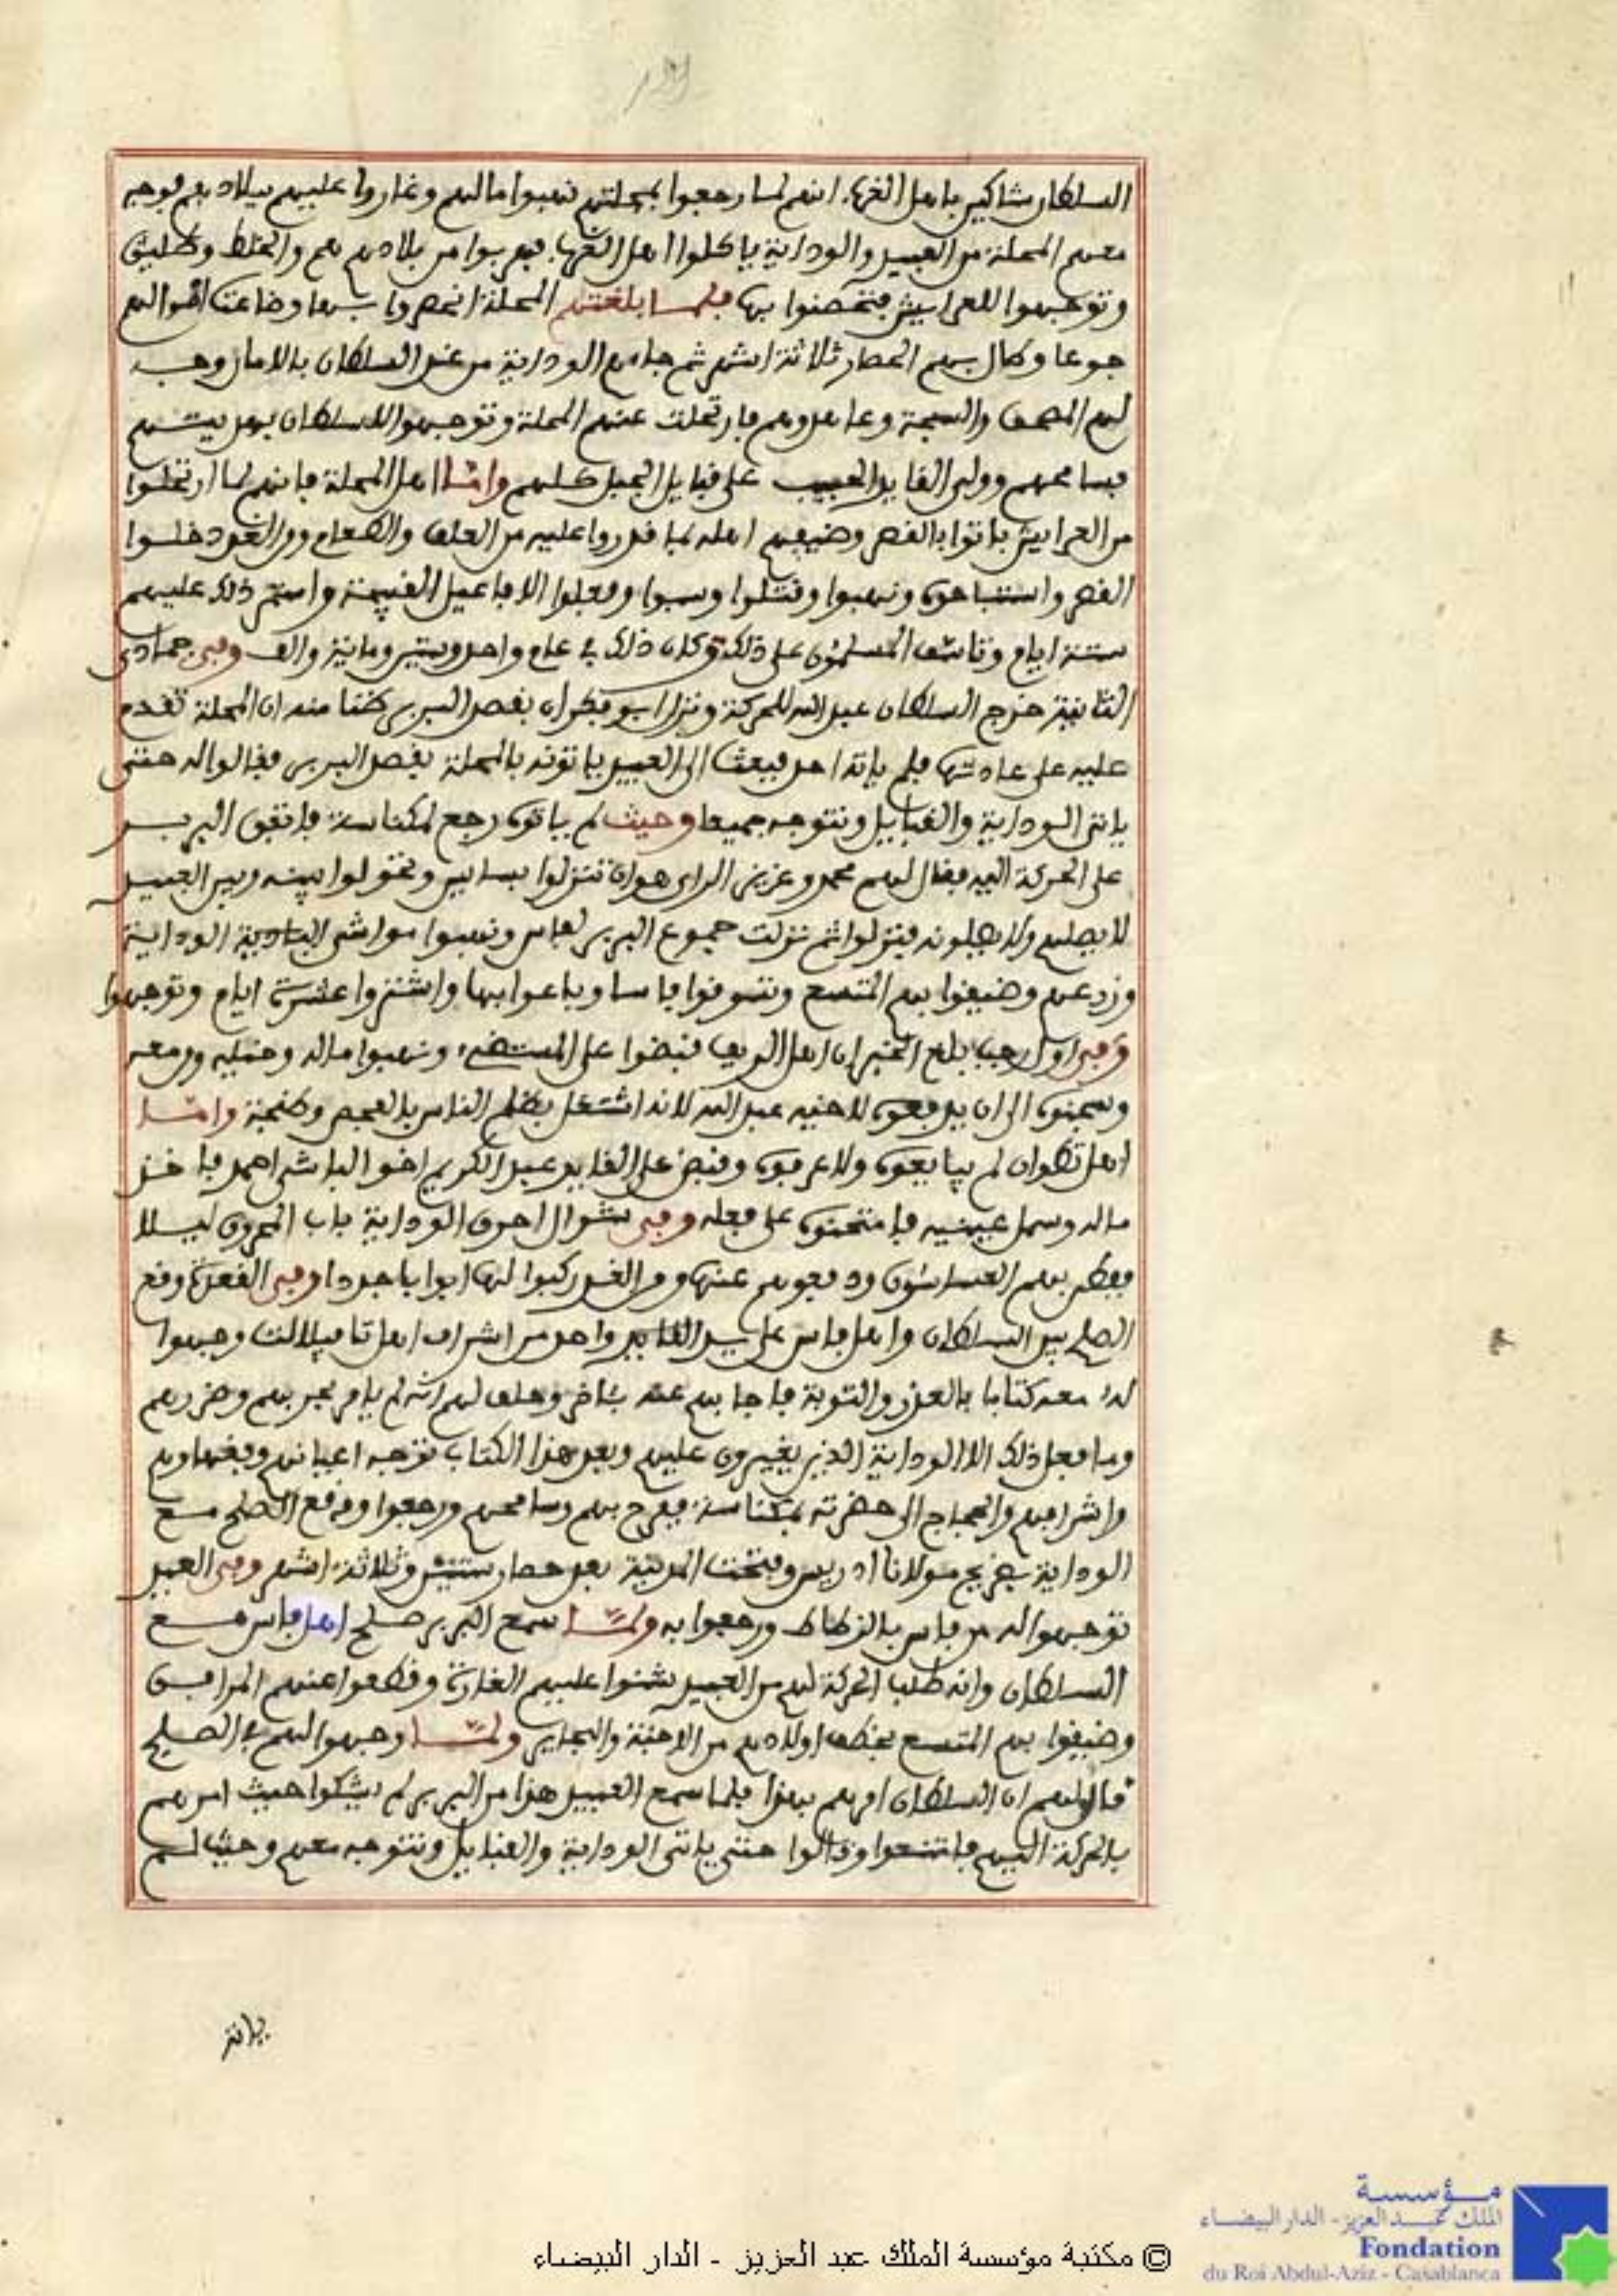 السلطان شاكين باهل الغرب انهم لما رجعوا بمحلتهم نهبوا مالهم وغاروا عليهم ببلادهم فوجه
معهم المحلة من العبيد والوداية ياكلوا اهل الغرب فهربوا من بلادهم هم والخلط وطليق
وتوجهوا للعرايش فتحصنوا بها فلما بلغتهم المحلة انحصروا بها وضاعت اموالهم
جوعا وطال بهم الحصار ثلاثة اشهر ثم جاءهم الوداية من عند السلطان بالامان وجه
لهم المصحف والسبحة وعاهدوهم فارتحلت عنهم المحلة وتوجهوا للسلطان بهديتهم
فسامحهم وولى القايد الحبيب على قبايل الجبل كلهم واما اهل المحلة فانهم لما ارتحلوا
من العرايش باتوا بالقصر وضيفهم اهله بما قدروا عليه من العلف والطعام ومن الغد دخلوا
القصر واستباحوه ونهبوا وقتلوا وسبوا وفعلوا الافاعيل القبيحة واستمر ذلك عليهم
ستة ايام وتاسف المسلمون على ذلك وكان ذلك في عام واحد وستين ومائة والف وفي جمادى
الثانية خرج السلطان عبد الله للحركة ونزل ابو فكران بقصد البربر ظنا منه ان المحلة تقدم
عليه على عادتها فلم ياته احد فبعث الى العبيد ياتونه بالمحلة بقصد البربر فقالوا له حتى
ياتى الوداية والقبايل ونتوجه جميعا وحيث لم ياتوه رجع لمكناسة فاتفق البربر
على الحركة اليه فقال لهم محمد وعزيز الراى هو ان تنزلوا بسايس وتحولوا بينه وبين العبيد
لا يصلهم ولا يصلونه فنزلوا ثم نزلت جموع البربر لفاس ونهبوا مواشى البادية الوداية
وزرعهم وضيقوا بهم المتسع وتسوقوا فاسا وباعوا بها واشتروا عشرة ايام وتوجهوا
وفي اول رجب بلغ الخبر ان اهل الريف قبضوا على المستضيء ونهبوا ماله وخيله ومن معه
وسجنوه الى ان يدفعوه لاخيه عبد الله لانه اشتغل بظلم الناس بالفحص وطنجة واما
اهل تطوان لم يبايعوه ولا عرفوه وقبض على القايد عبد الكريم اخو الباشا احمد فاخذ
ماله وسمل عينيه فامتحنوه على فعله وفي شوال احرق الوداية باب المحروق ليلا
ففطن بهم العساسون ودفعوهم عنها ومن الغد ركبوا لها ابوابا جددا وفي القعدة وقع
الصلح بين السلطان واهل فاس على يد القايد واحد من اشراف اهل تافيلالت وجهوا
له معه كتابا بالعذر والتوبة فاجابهم عنه بآخر وحلف لهم انه لم يامر بحربهم وضررهم
وما فعل ذلك الا الوداية الذين يغيرون عليهم وبعد هذا الكتاب توجه اعيانهم وفقهاؤهم
واشرافهم والحجاج الى حضرته بمكناسة ففرح بهم وسامحهم ورجعوا ووقع الصلح مع
الوداية بضريح مولانا ادريس وفتحت المدينة بعد حصار سنتين وثلاثة اشهر وفي العيد
توجهوا له من فاس بالزطاط ورجعوا به ولما سمع البربر صلح اهل فاس مع
السلطان وانه طلب الحركة لهم من العبيد شنوا عليهم الغارة وقطعوا عنهم المرافق
وضيقوا بهم المتسع بخطف اولادهم من الاجنة والبحاير ولما وجهوا لهم في الصلح
قالوا لهم ان السلطان امرهم بهذا فلما سمع العبيد هذا من البربر لم يشكوا حيث امرهم
بالحركة اليهم فامتنعوا وقالوا حتى ياتى الوداية والقبايل ونتوجه معهم وحيث لم
ياتو
© مكتبة مؤسسة الملك عبد العزيز - الدار البيضاء
مؤسسة
الملك عبد العزيز - الدار البيضاء
Fondation
du Roi Abdul-Aziz - Casablanca